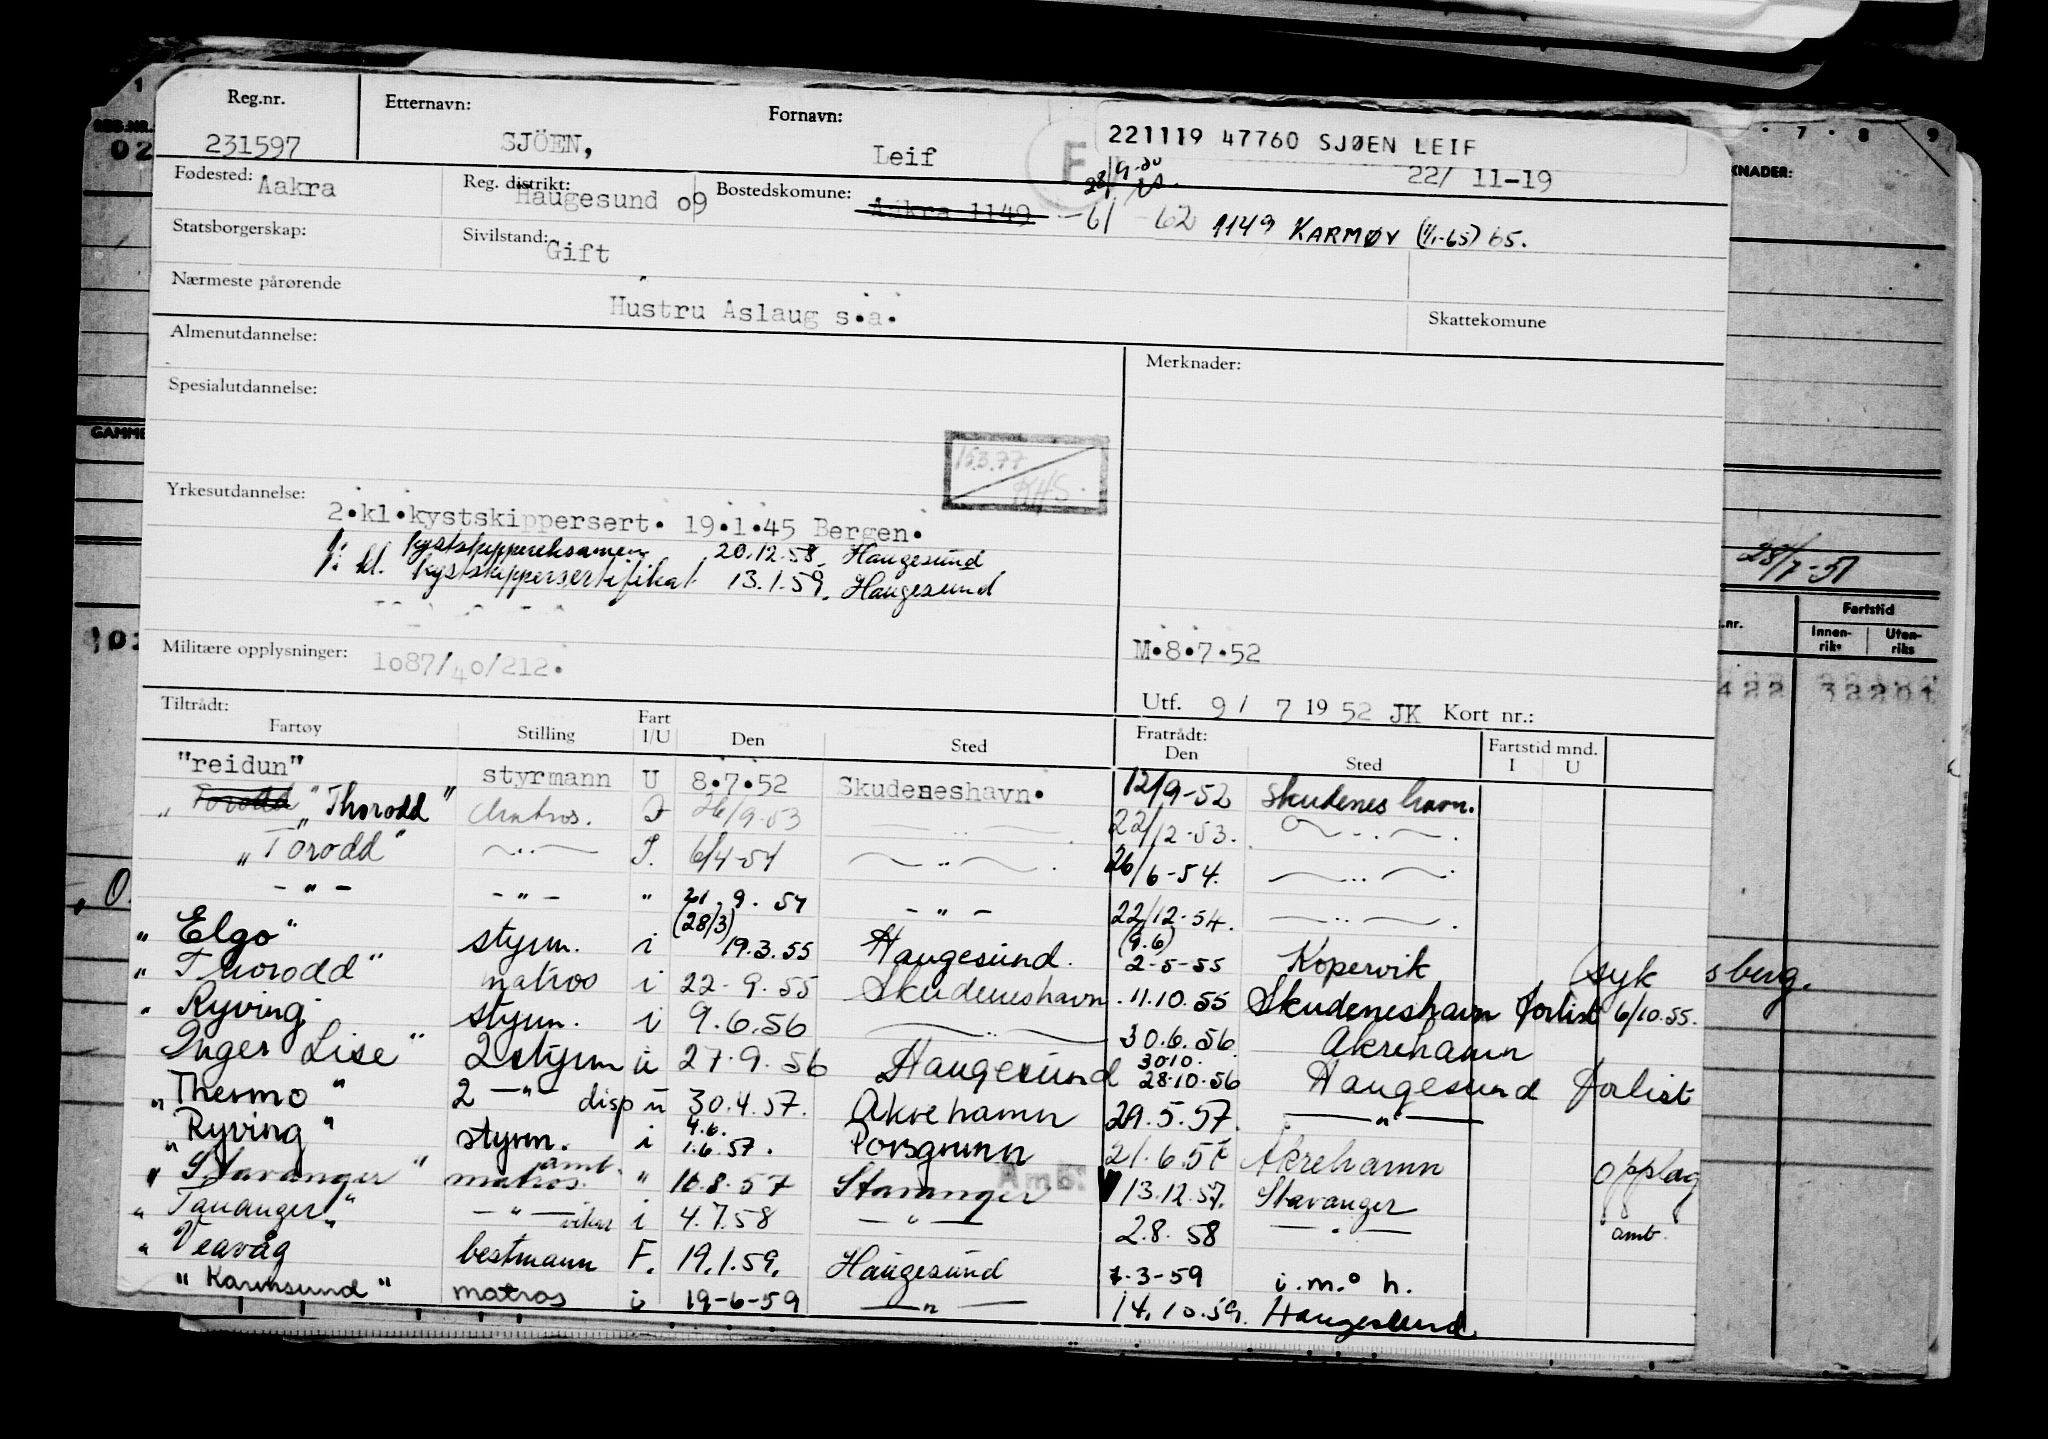 Reg.nr. Etternavn: Fornavn: 221119 47760 SJØEN LEIF
231597 SJÖEN, Leif 22/ 11-19
Fødested: Aakra Reg. distrikt: Haugesund o9 Bostedskomune: Aakra 1149 -61 -62 1149 KARMØY (1/1-65) 65.
Statsborgerskap: Sivilstand: Gift
Nærmeste pårørende Hustru Aslaug s.a. Skattekomune
Almenutdannelse: Merknader:
Spesialutdannelse:
15.3.77
Yrkesutdannelse: 2.kl.kystskippersert. 19.1.45 Bergen.
1. kystskippereksamen 20.12.58. Haugesund
1. kl. kystskippersertifikat 13.1.59. Haugesund
Militære opplysninger: 1o87/40/212. M.8.7.52
Utf. 9 / 7 19 52 JK Kort nr.:
Tiltrådt: Fratrådt: Fartstid mnd.
Fartøy Stilling Fart I/U Den Sted Den Sted I U
"reidun" styrmann U 8.7.52 Skudeneshavn. 12/9-52 Skudeneshavn.
" Torodd "Thorodd" Matros. I 26/9-53 — " — 22/12-53. — " — .
"Torodd" — " — I. 6/4-54 — " — . 26/6-54. — " —
- " - - " - " 21.9.54 - " - 22/12-54. — " — .
"Elgo" styrm. i (28/3) 19.3.55 Haugesund. (9.6) 2-5-55 Kopervik syk
"Thorodd" matros i 22-9.55 Skudeneshavn 11.10.55 Skudeneshavn forlist 6/10.55.
" Ryving styrm. i 9.6.56 — " — 30.6.56. Åkrehamn
Inger Lise" 2 styrm u 27.9.56 Haugesund 30.10. 28.10.56 Haugesund forlist
"Thermo" 2 — " — disp u 30.4.57. Åkrehamn 29.5.57. — " —
"Ryving" styrm. i 4.6. 1.6.57. Porsgrunn 21.6.57 Åkrehamn opplag
"Stavanger" matros amb. " 10.8.57 Stavanger Amb: 13.12.57. Stavanger
"Tananger" — " — vikar i 4.7.58 — " — 2.8.58 — " — amb.
"Veavåg" bestmann F. 19.1.59. Haugesund 7.3-59 i.m.o h.
"Karmsund" matros i 19-6-59 — " — 14.10.59. Haugesund
1
02
GAMME
102
0.
7 8 9
KNADER:
28/7-51
.nr. Fartstid
Innen-riks Uten-riks
422 32201
sberg.